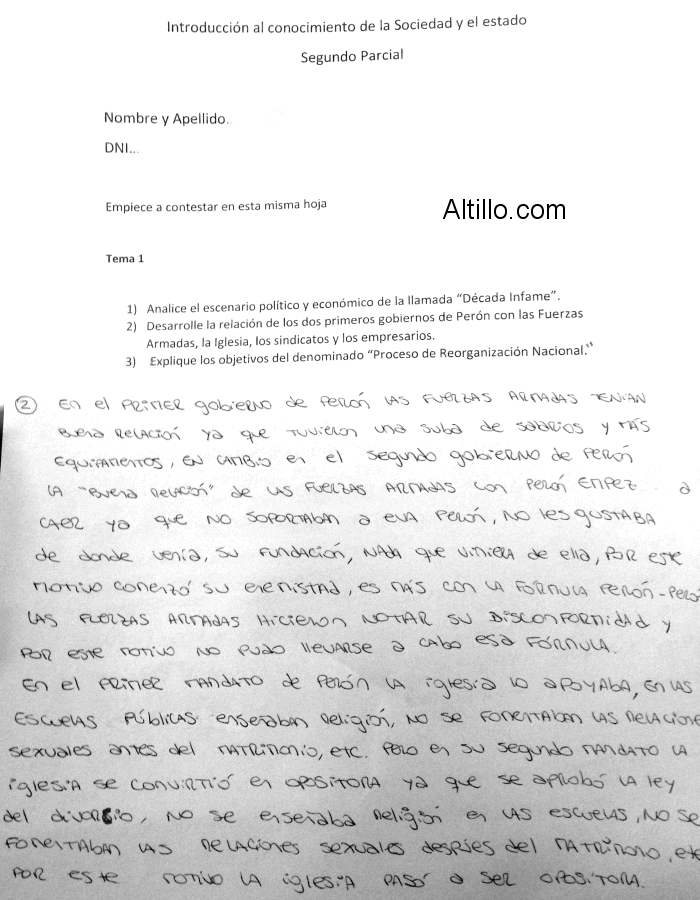 Introducción al conocimiento de la Sociedad y el estado
Segundo Parcial
Nombre y Apellido..
DNI...
Empiece a contestar en esta misma hoja
Altillo.com
Tema 1
1) Analice el escenario político y económico de la llamada “Década Infame”.
2) Desarrolle la relación de los dos primeros gobiernos de Perón con las Fuerzas
Armadas, la Iglesia, los sindicatos y los empresarios.
3) Explique los objetivos del denominado “Proceso de Reorganización Nacional.”
2 En el PRIMER gobierno de Perón LAS FUERZAS ARMADAS TENIAN
Buena RELACIÓN ya que TUVIERON una suba de salarios y MÁS
EQUIPAMIENTOS, EN CAMBIO en el segundo gobierno de Perón
LA "Buena Relación" de LAS FUERZAS ARMADAS con Perón EMPEZ a
CAER ya que NO SOPORTABAN a EVA Perón, NO les gUSTABA
de donde venía, SU FUNDACIÓN, NADA que VINIERA de ella, POR ESTE
MOTIVO COMENZÓ SU ENEMISTAD, es MÁS CON LA FÓRMULA PERÓN-Peró
LAS FUERZAS ARMADAS HICIERON NOTAR SU DISCONFORMIDAD y
POR ESTE MOTIVO NO PUDO llEVARSE a CABO ESA FÓRMULA.
En el PRIMER MANDATO de PERÓN LA iglesia lo APOYABA, EN LAS
ESCUELAS PÚBLICAS enseñaban Religión, NO SE FOMENTABAN LAS RELACIONE
SEXUALES ANTES del MATRIMONIO, etc. Pero en su segundo MANDATO LA
iglesIA SE CONVIRTIÓ en OPOSITORA ya que se aprobó LA ley
del divorcio, NO SE enseñaba Religión en LAS escuelas, NO SE
FOMENTABAN LAS RELACIONES SEXUALES despúes del MATRIMONO, etc
POR ESTE MOTIVO LA iglesIA PASÓ a SER OPOSITORA.